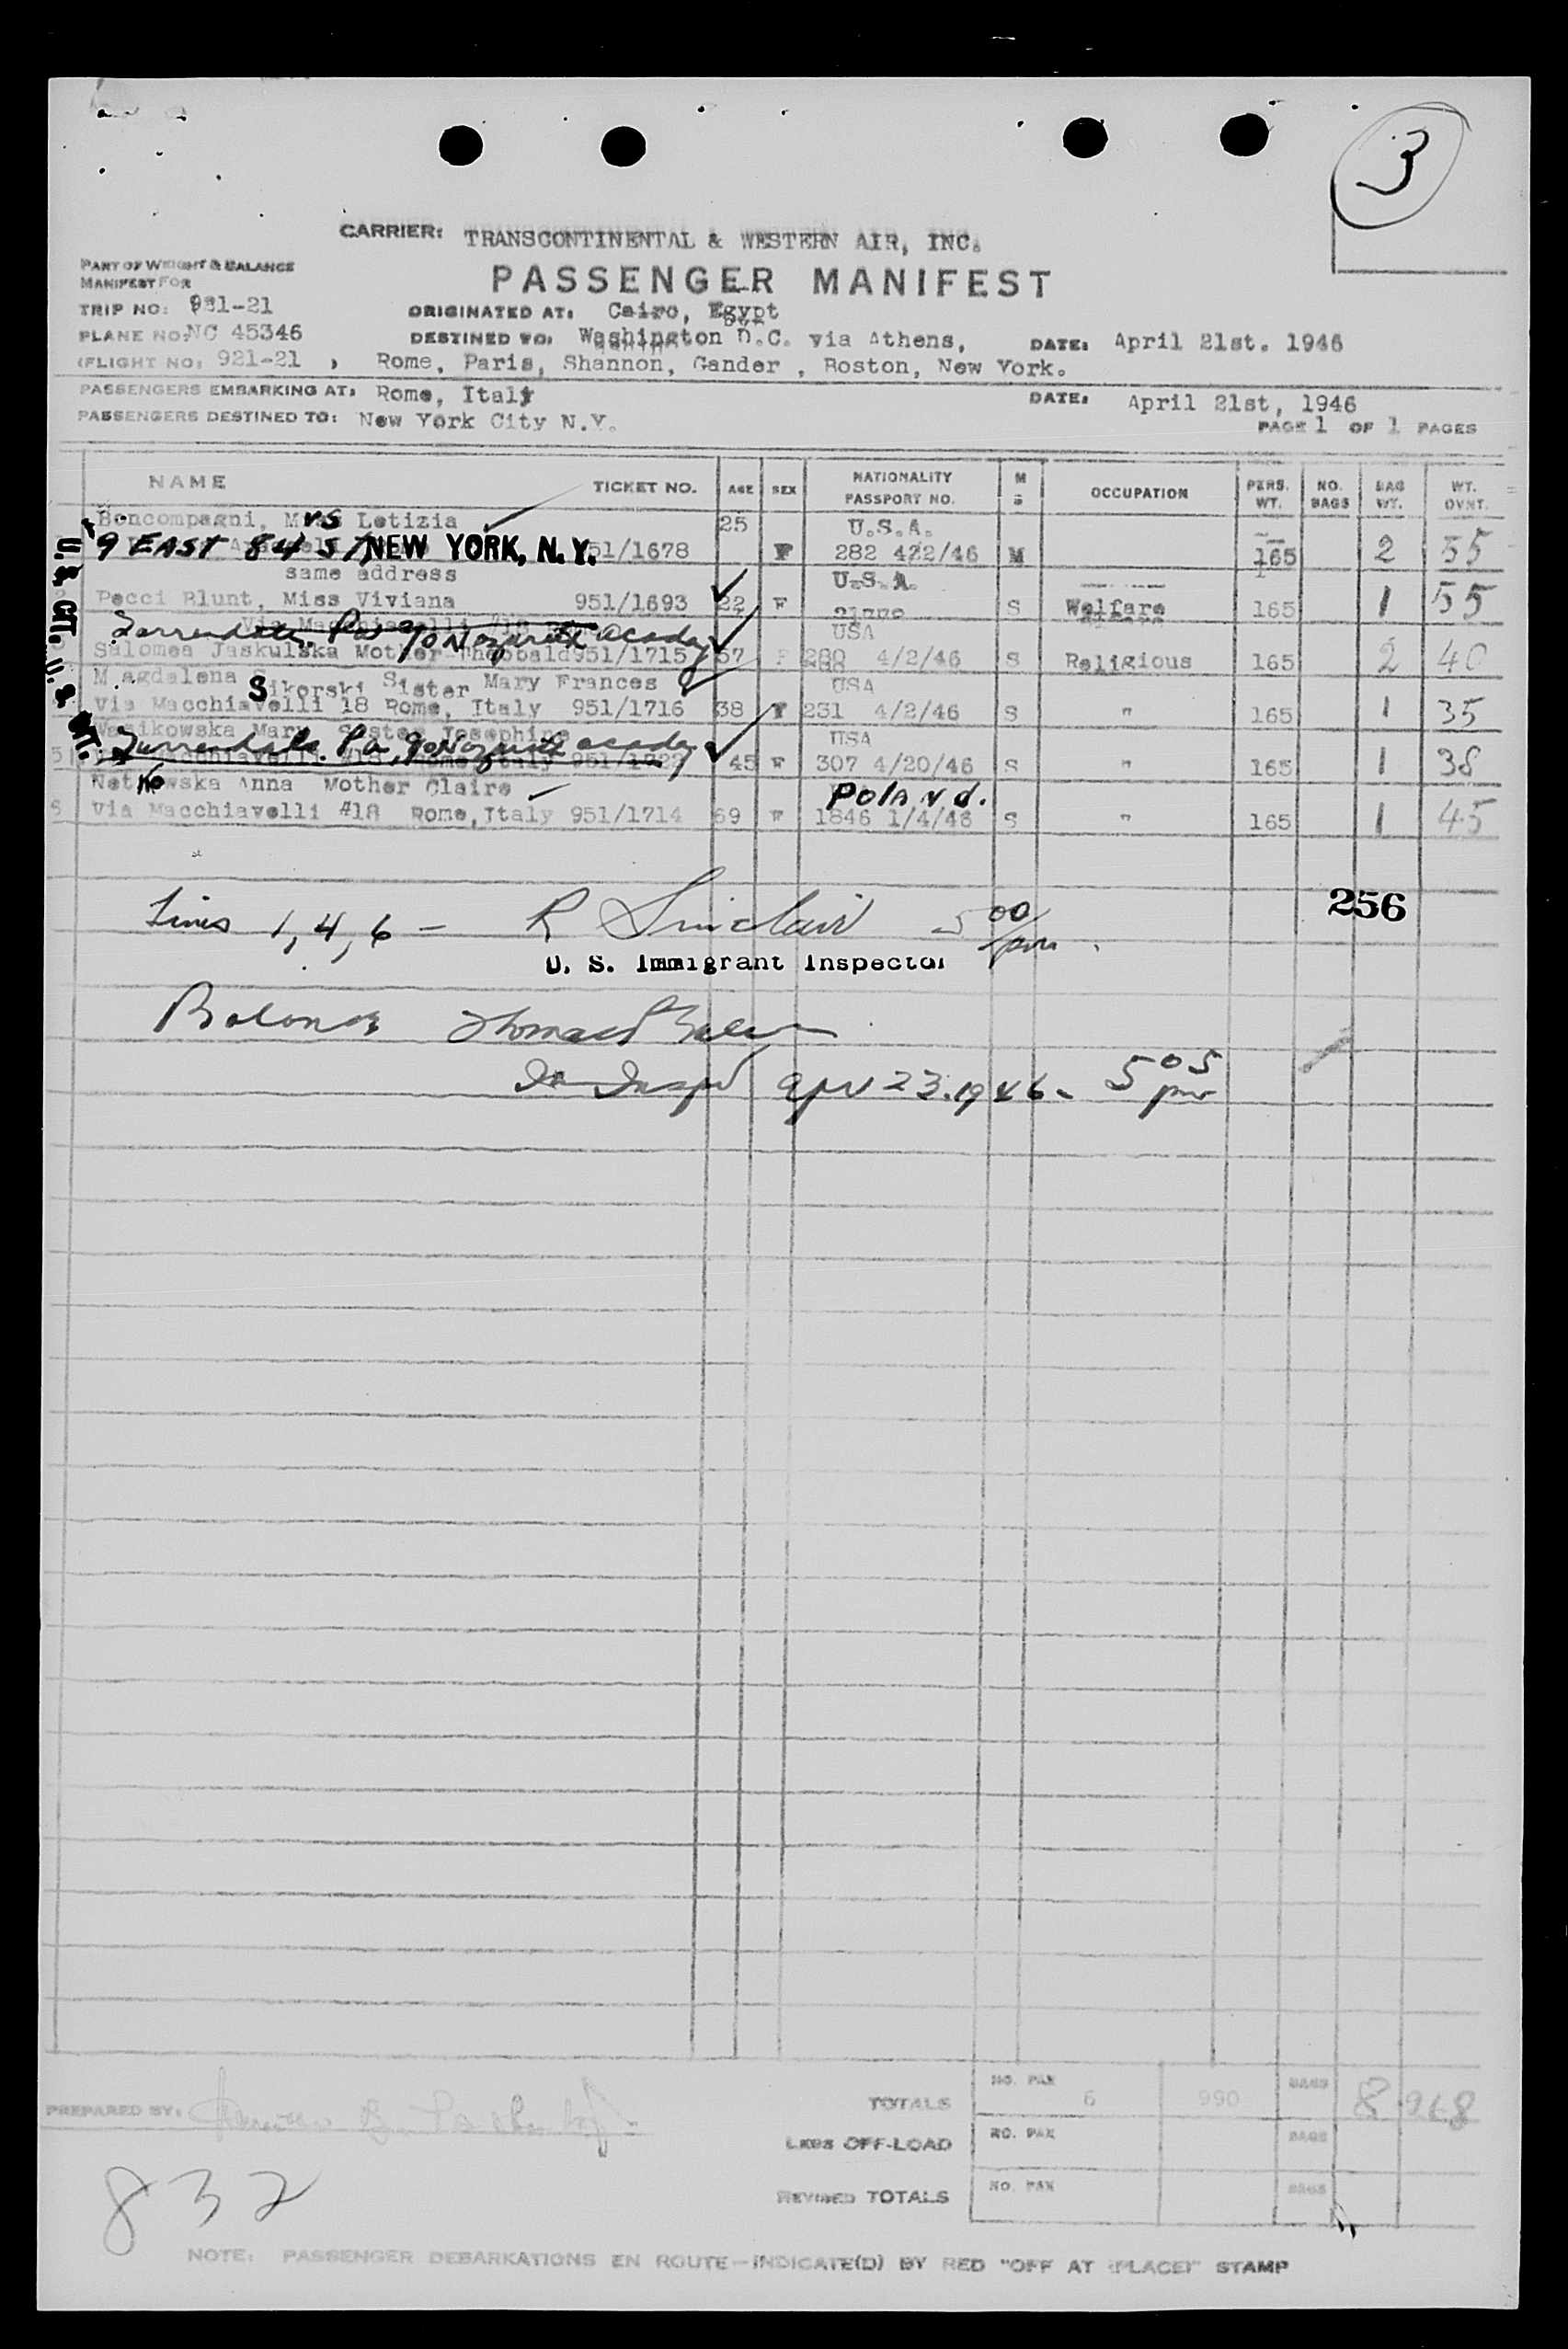 3
CARRIER: TRANSCONTINENTAL & WESTERN AIR, INC.
PART OF WEIGHT & BALANCE
MANIFEST FOR
PASSENGER MANIFEST
TRIP NO: 921-21
ORIGINATED AT: Cairo, Egypt
PLANE NO: NC 45346
DESTINED TO: Washington D.C. via Athens,
DATE: April 21st. 1946
(FLIGHT NO: 921-21 , Rome, Paris, Shannon, Gander , Boston, New York.
PASSENGERS EMBARKING AT: Rome, Italy
DATE: April 21st, 1946
PASSENGERS DESTINED TO: New York City N.Y.
PAGE 1 OF 1 PAGES
NAME TICKET NO. AGE SEX NATIONALITY PASSPORT NO. M S OCCUPATION PERS. WT. NO. BAGS BAG WT. WT. OVNT.
Boncompagni, Mrs Letizia 25 U.S.A.
9 EAST 84 ST NEW YORK, N.Y. 951/1678 F 282 422/46 M 165 2 55
same address U.S.A.
Pecci Blunt, Miss Viviana 951/1693 22 F S Welfare 165 1 55
Torresdale, Pa c/o Nazareth Academy USA
Salomea Jaskulska Mother Theobald 951/1715 57 F 280 4/2/46 S Religious 165 2 40
Magdalena Sikorski Sister Mary Frances USA
Via Macchiavelli 18 Rome, Italy 951/1716 38 F 231 4/2/46 S " 165 1 35
Wasikowska Mary Sister Josephine USA
5 Torresdale Pa. c/o Nazareth Academy 45 F 307 4/20/46 S " 165 1 38
Netkowska Anna Mother Claire Poland.
6 Via Macchiavelli #18 Rome, Italy 951/1714 69 F 1846 1/4/46 S " 165 1 45
U.S. CIT. U.S. WT.
256
Lines 1, 4, 6 - R Sinclair 5 00/pm
U. S. Immigrant Inspector
Balance Thomas
Im Inspr Apr 23. 1946 - 5 05 pm
PREPARED BY:
TOTALS NO. PAX 6 990 BAGS 8 268
LESS OFF-LOAD NO. PAX BAGS
REVISED TOTALS NO. PAX BAGS
832
NOTE: PASSENGER DEBARKATIONS EN ROUTE—INDICATE(D) BY RED "OFF AT (PLACE)" STAMP